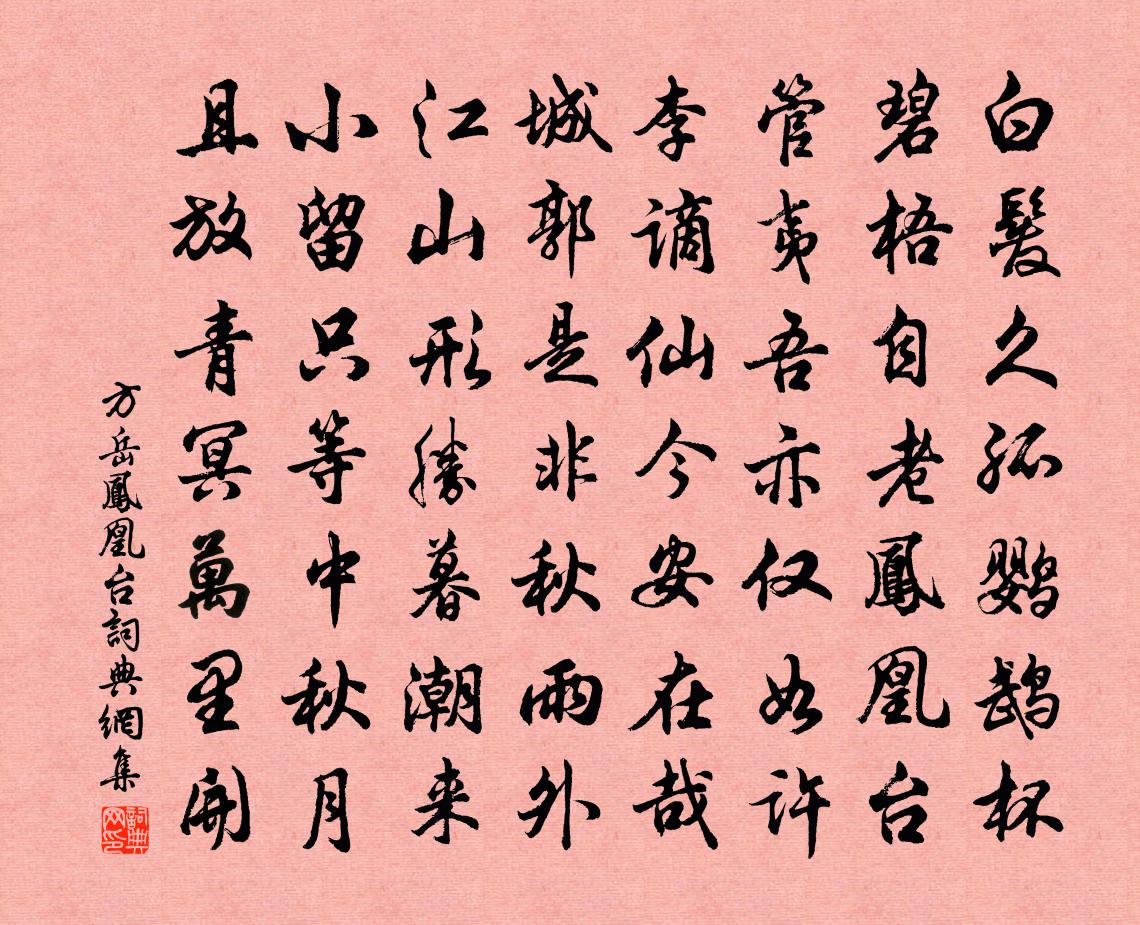 白髮久孤鸚鵡杯
碧梧自老鳳凰台
管夷吾亦仅如許
李謫仙今安在哉
城郭是非秋雨外
江山形勝暮潮来
小留只等中秋月
且放青冥萬里開
方岳鳳凰台詞典網集
詞典网印